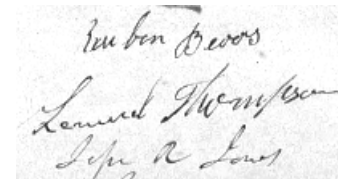 Reuben Bevos
Lemuel Thompson
A Jones